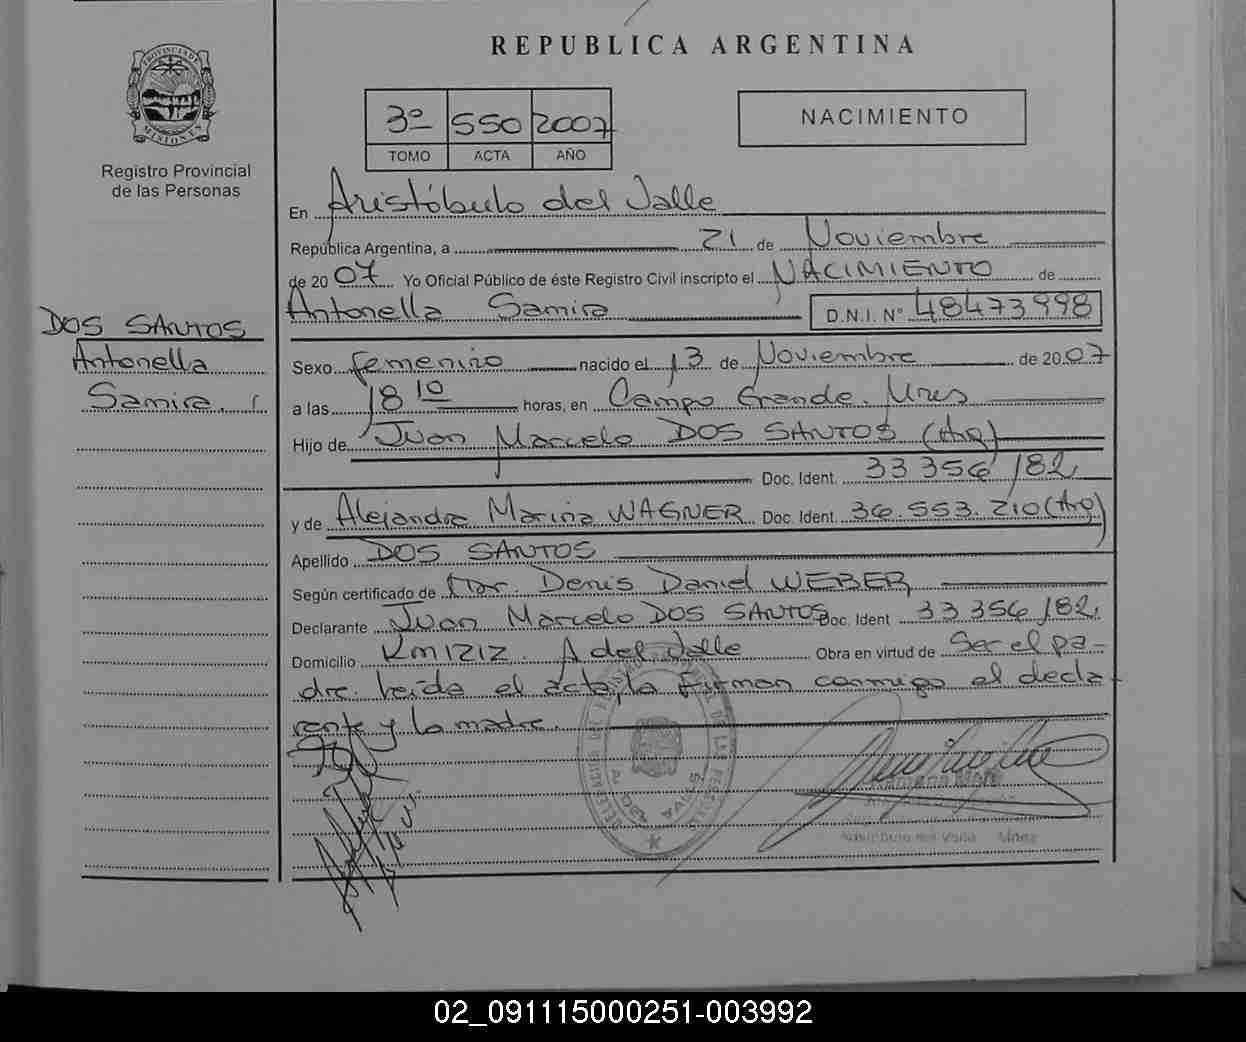 REPUBLICA ARGENTINA
PROVINCIA DE MISIONES
Registro Provincial
de las Personas
3º 550 2007
TOMO ACTA AÑO
NACIMIENTO
En Aristóbulo del Valle
República Argentina, a 21 de Noviembre
de 20 07 Yo Oficial Público de éste Registro Civil inscripto el NACIMIENTO de
Antonella Samira D.N.I. Nº 48473998
DOS SANTOS
Antonella
Samira
Sexo femenino nacido el 13 de Noviembre de 20 07
a las 18 10 horas, en Campo Grande. Mnes
Hijo de Juan Marcelo DOS SANTOS (Arg)
Doc. Ident. 33 356 182
y de Alejandra Marina WAGNER Doc. Ident. 36.553.210 (Arg)
Apellido DOS SANTOS
Según certificado de Dr. Denis Daniel WEBER
Declarante Juan Marcelo DOS SANTOS Doc. Ident 33 356 182
Domicilio Km 1212. A del Valle Obra en virtud de Ser el pa-
dre. leída el acta, la firman conmigo el decla
rante y la madre.
Aristóbulo del Valle Mnes
02_091115000251-003992